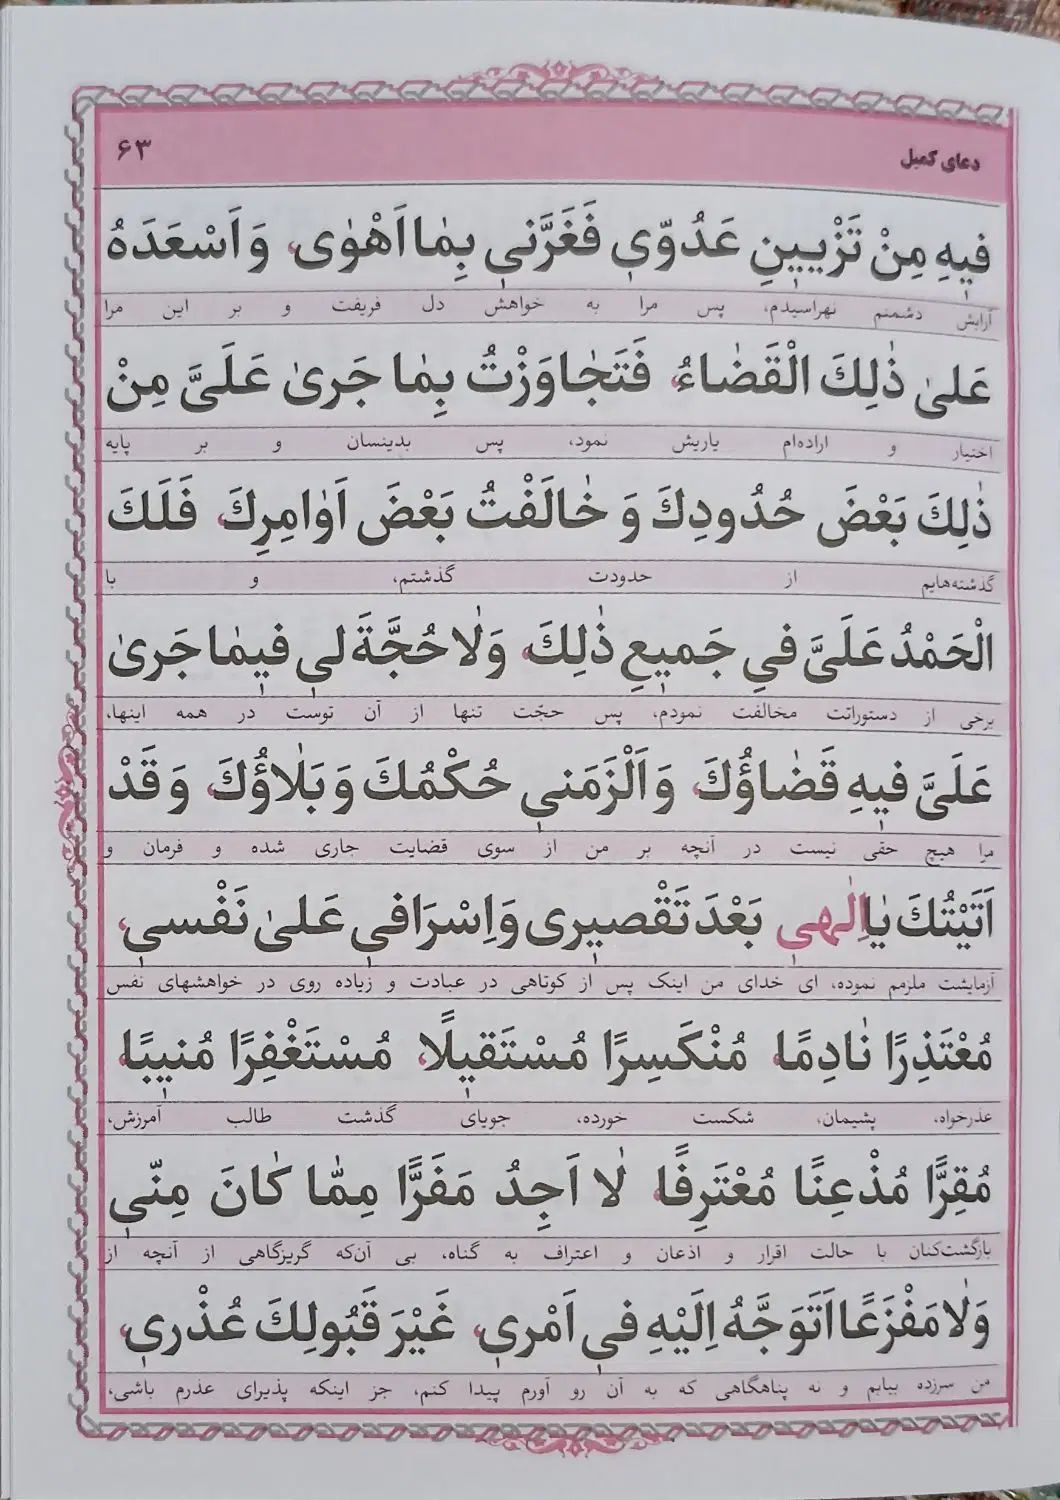 دعای کمیل
۶۳
فیهِ مِنْ تَزْیینِ عَدُوّی فَغَرَّنی بِمٰا اَهْوٰی، وَ اَسْعَدَهُ
آرایش دشمنم نهراسیدم، پس مرا به خواهش دل فریفت و بر این مرا
عَلیٰ ذٰلِكَ الْقَضٰاءُ، فَتَجٰاوَزْتُ بِمٰا جَریٰ عَلَیَّ مِنْ
اختیار و اراده‌ام یاریش نمود، پس بدینسان و بر پایه
ذٰلِكَ بَعْضَ حُدُودِكَ وَ خٰالَفْتُ بَعْضَ اَوٰامِرِكَ، فَلَكَ
گذشته‌هایم از حدودت گذشتم، و با
الْحَمْدُ عَلَیَّ فی جَمیعِ ذٰلِكَ، وَلاٰ حُجَّةَ لی فیمٰا جَریٰ
برخی از دستوراتت مخالفت نمودم، پس حجّت تنها از آن توست در همه اینها،
عَلَیَّ فیهِ قَضٰاؤُكَ، وَ اَلْزَمَنی حُكْمُكَ وَ بَلاٰؤُكَ، وَ قَدْ
مرا هیچ حقی نیست در آنچه بر من از سوی قضایت جاری شده و فرمان و
اَتَیْتُكَ یٰا اِلٰهی بَعْدَ تَقْصیری وَ اِسْرَافی عَلیٰ نَفْسی،
آزمایشت ملزمم نموده، ای خدای من اینک پس از کوتاهی در عبادت و زیاده روی در خواهشهای نفس
مُعْتَذِرًا نٰادِمًا، مُنْكَسِرًا مُسْتَقیلًا، مُسْتَغْفِرًا مُنیبًا،
عذرخواه، پشیمان، شکست خورده، جویای گذشت طالب آمرزش،
مُقِرًّا مُذْعِنًا مُعْتَرِفًا، لاٰ اَجِدُ مَفَرًّا مِمّٰا كٰانَ مِنّی
بازگشت‌کنان با حالت اقرار و اذعان و اعتراف به گناه، بی آن‌که گریزگاهی از آنچه از
وَلاٰ مَفْزَعًا اَتَوَجَّهُ اِلَیْهِ فی اَمْری، غَیْرَ قَبُولِكَ عُذْری،
من سرزده بیابم و نه پناهگاهی که به آن رو آورم پیدا کنم، جز اینکه پذیرای عذرم باشی،